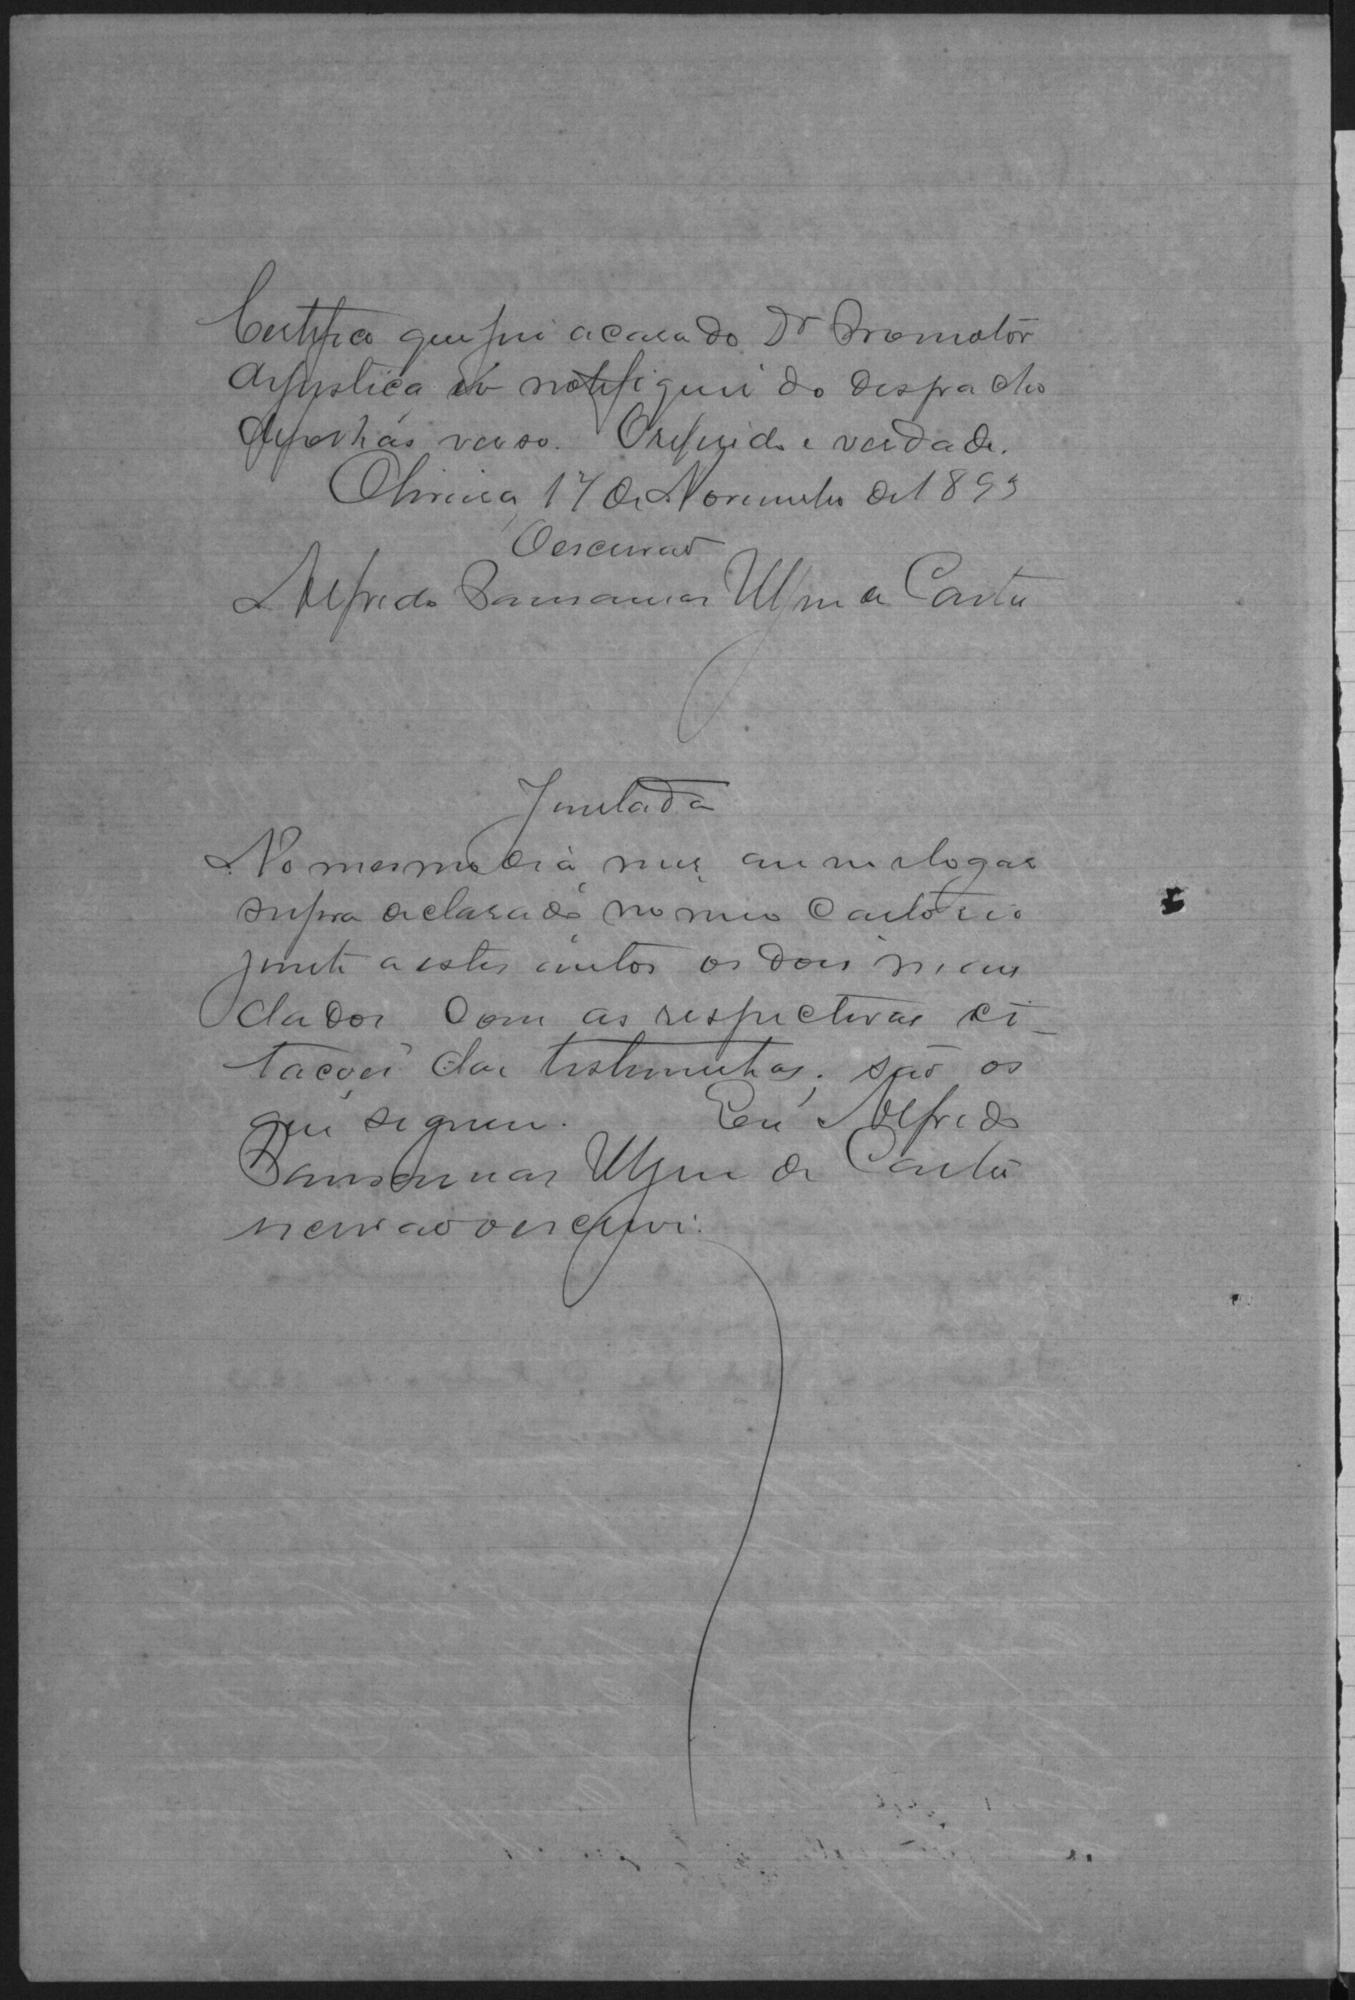 Certifico que fui a casa do Dr Promotor
da justiça e o notifiquei do despacho
de folhas verso. O referido e verdade.
Oliveira, 17 de Novembro de 1893
O escrivão
Alfredo de Castro
Juntada
No mesmo dia mez anno e logar
supra declarado no meu Cartorio
junto a estes autos os dois man
dados com as respectivas ci-
tações das testemunhas; são os
que seguem. Eu Alfredo
de Castro
escrivão o escrevi.